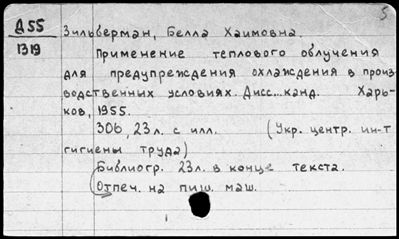 5
Д55
1319
Зильберман, Белла Хаимовна.
Применение теплового облучения
для предупреждения охлаждения в произ-
водственных условиях. Дисс... канд. Харь-
ков, 1955.
306, 23л. с илл. (Укр. центр. ин-т
гигиены труда)
Библиогр. 23л. в конце текста.
Отпеч. на пиш. маш.